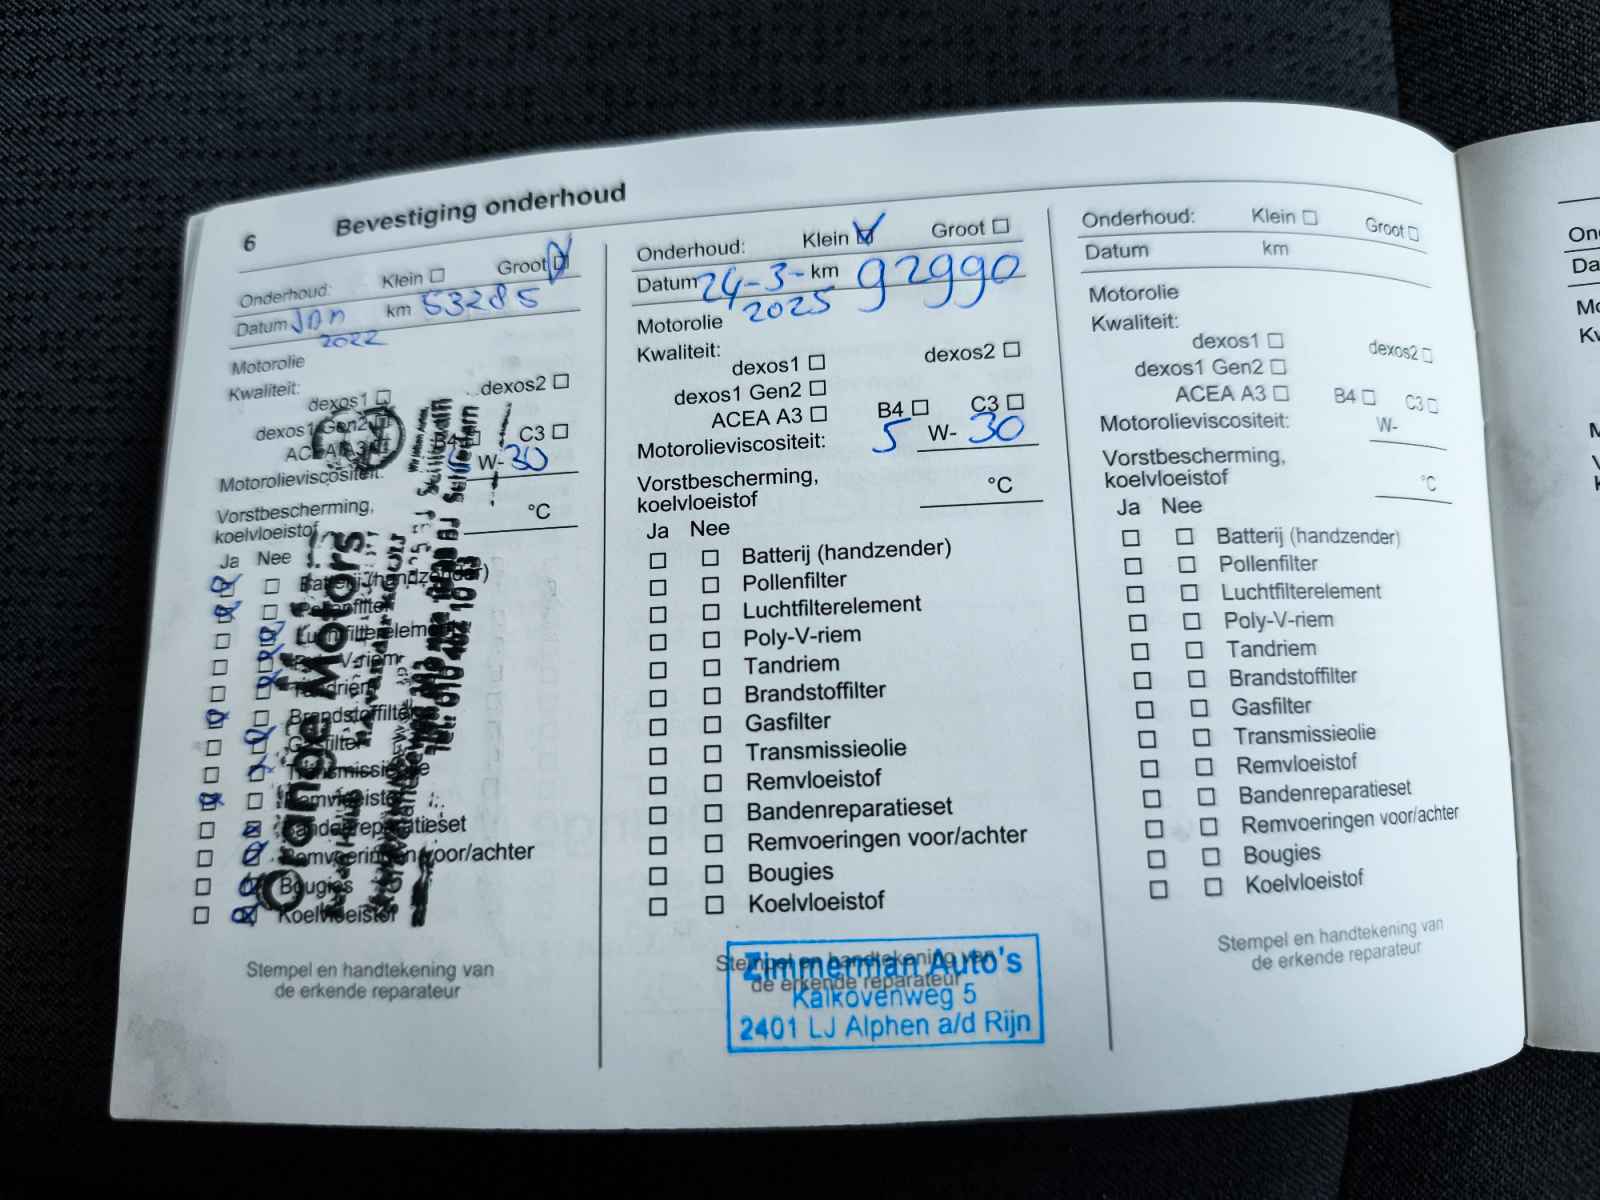 6
Bevestiging onderhoud
Onderhoud: Klein Groot
Datum Jan km 53285
2022
Motorolie
Kwaliteit:
dexos1 dexos2
dexos1 Gen2
ACEA A3 B4 C3
Motorolieviscositeit: W- 30
Vorstbescherming,
koelvloeistof °C
Ja Nee
Batterij (handzender)
Pollenfilter
Luchtfilterelement
Poly-V-riem
Tandriem
Brandstoffilter
Gasfilter
Transmissieolie
Remvloeistof
Bandenreparatieset
Remvoeringen voor/achter
Bougies
Koelvloeistof
Orange Motors
Stempel en handtekening van
de erkende reparateur
Onderhoud: Klein Groot
Datum 24-3- km 92990
2025
Motorolie
Kwaliteit:
dexos1 dexos2
dexos1 Gen2
ACEA A3 B4 C3
Motorolieviscositeit: 5 W- 30
Vorstbescherming,
koelvloeistof °C
Ja Nee
Batterij (handzender)
Pollenfilter
Luchtfilterelement
Poly-V-riem
Tandriem
Brandstoffilter
Gasfilter
Transmissieolie
Remvloeistof
Bandenreparatieset
Remvoeringen voor/achter
Bougies
Koelvloeistof
Stempel en handtekening van
de erkende reparateur
Zimmerman Auto's
Kalkovenweg 5
2401 LJ Alphen a/d Rijn
Onderhoud: Klein Groot
Datum km
Motorolie
Kwaliteit:
dexos1 dexos2
dexos1 Gen2
ACEA A3 B4 C3
Motorolieviscositeit: W-
Vorstbescherming,
koelvloeistof °C
Ja Nee
Batterij (handzender)
Pollenfilter
Luchtfilterelement
Poly-V-riem
Tandriem
Brandstoffilter
Gasfilter
Transmissieolie
Remvloeistof
Bandenreparatieset
Remvoeringen voor/achter
Bougies
Koelvloeistof
Stempel en handtekening van
de erkende reparateur